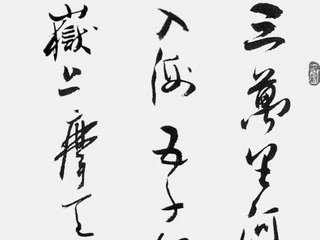 三萬里河
入海五千仞
嶽上摩天